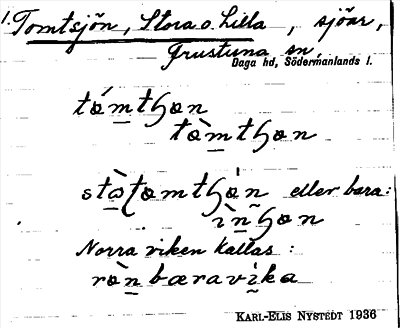 1. Tomtsjön, Stora o. Lilla, sjöar,
Frustuna sn,
Daga hd, Södermanlands l.
tómtꞕon
tòmtꞕon
eller bara:
Norra viken kallas:
ròn bæravìka
KARL-ELIS NYSTEDT 1936